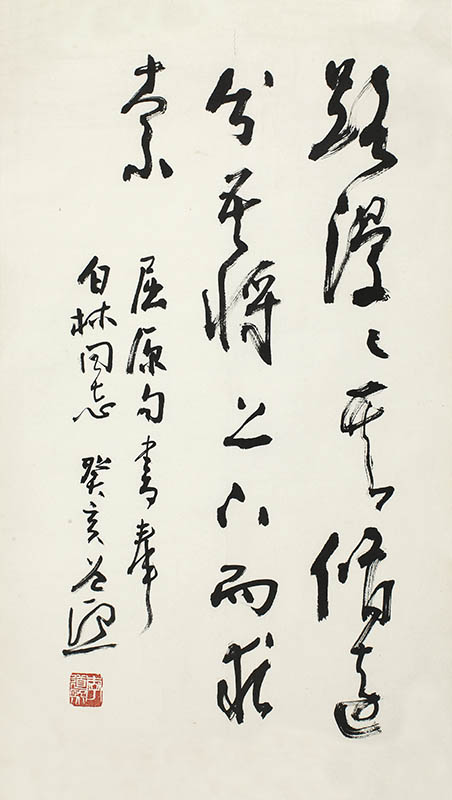 路漫々其修遠
兮吾将上下而求
索
屈原句書奉
白林同志 癸亥